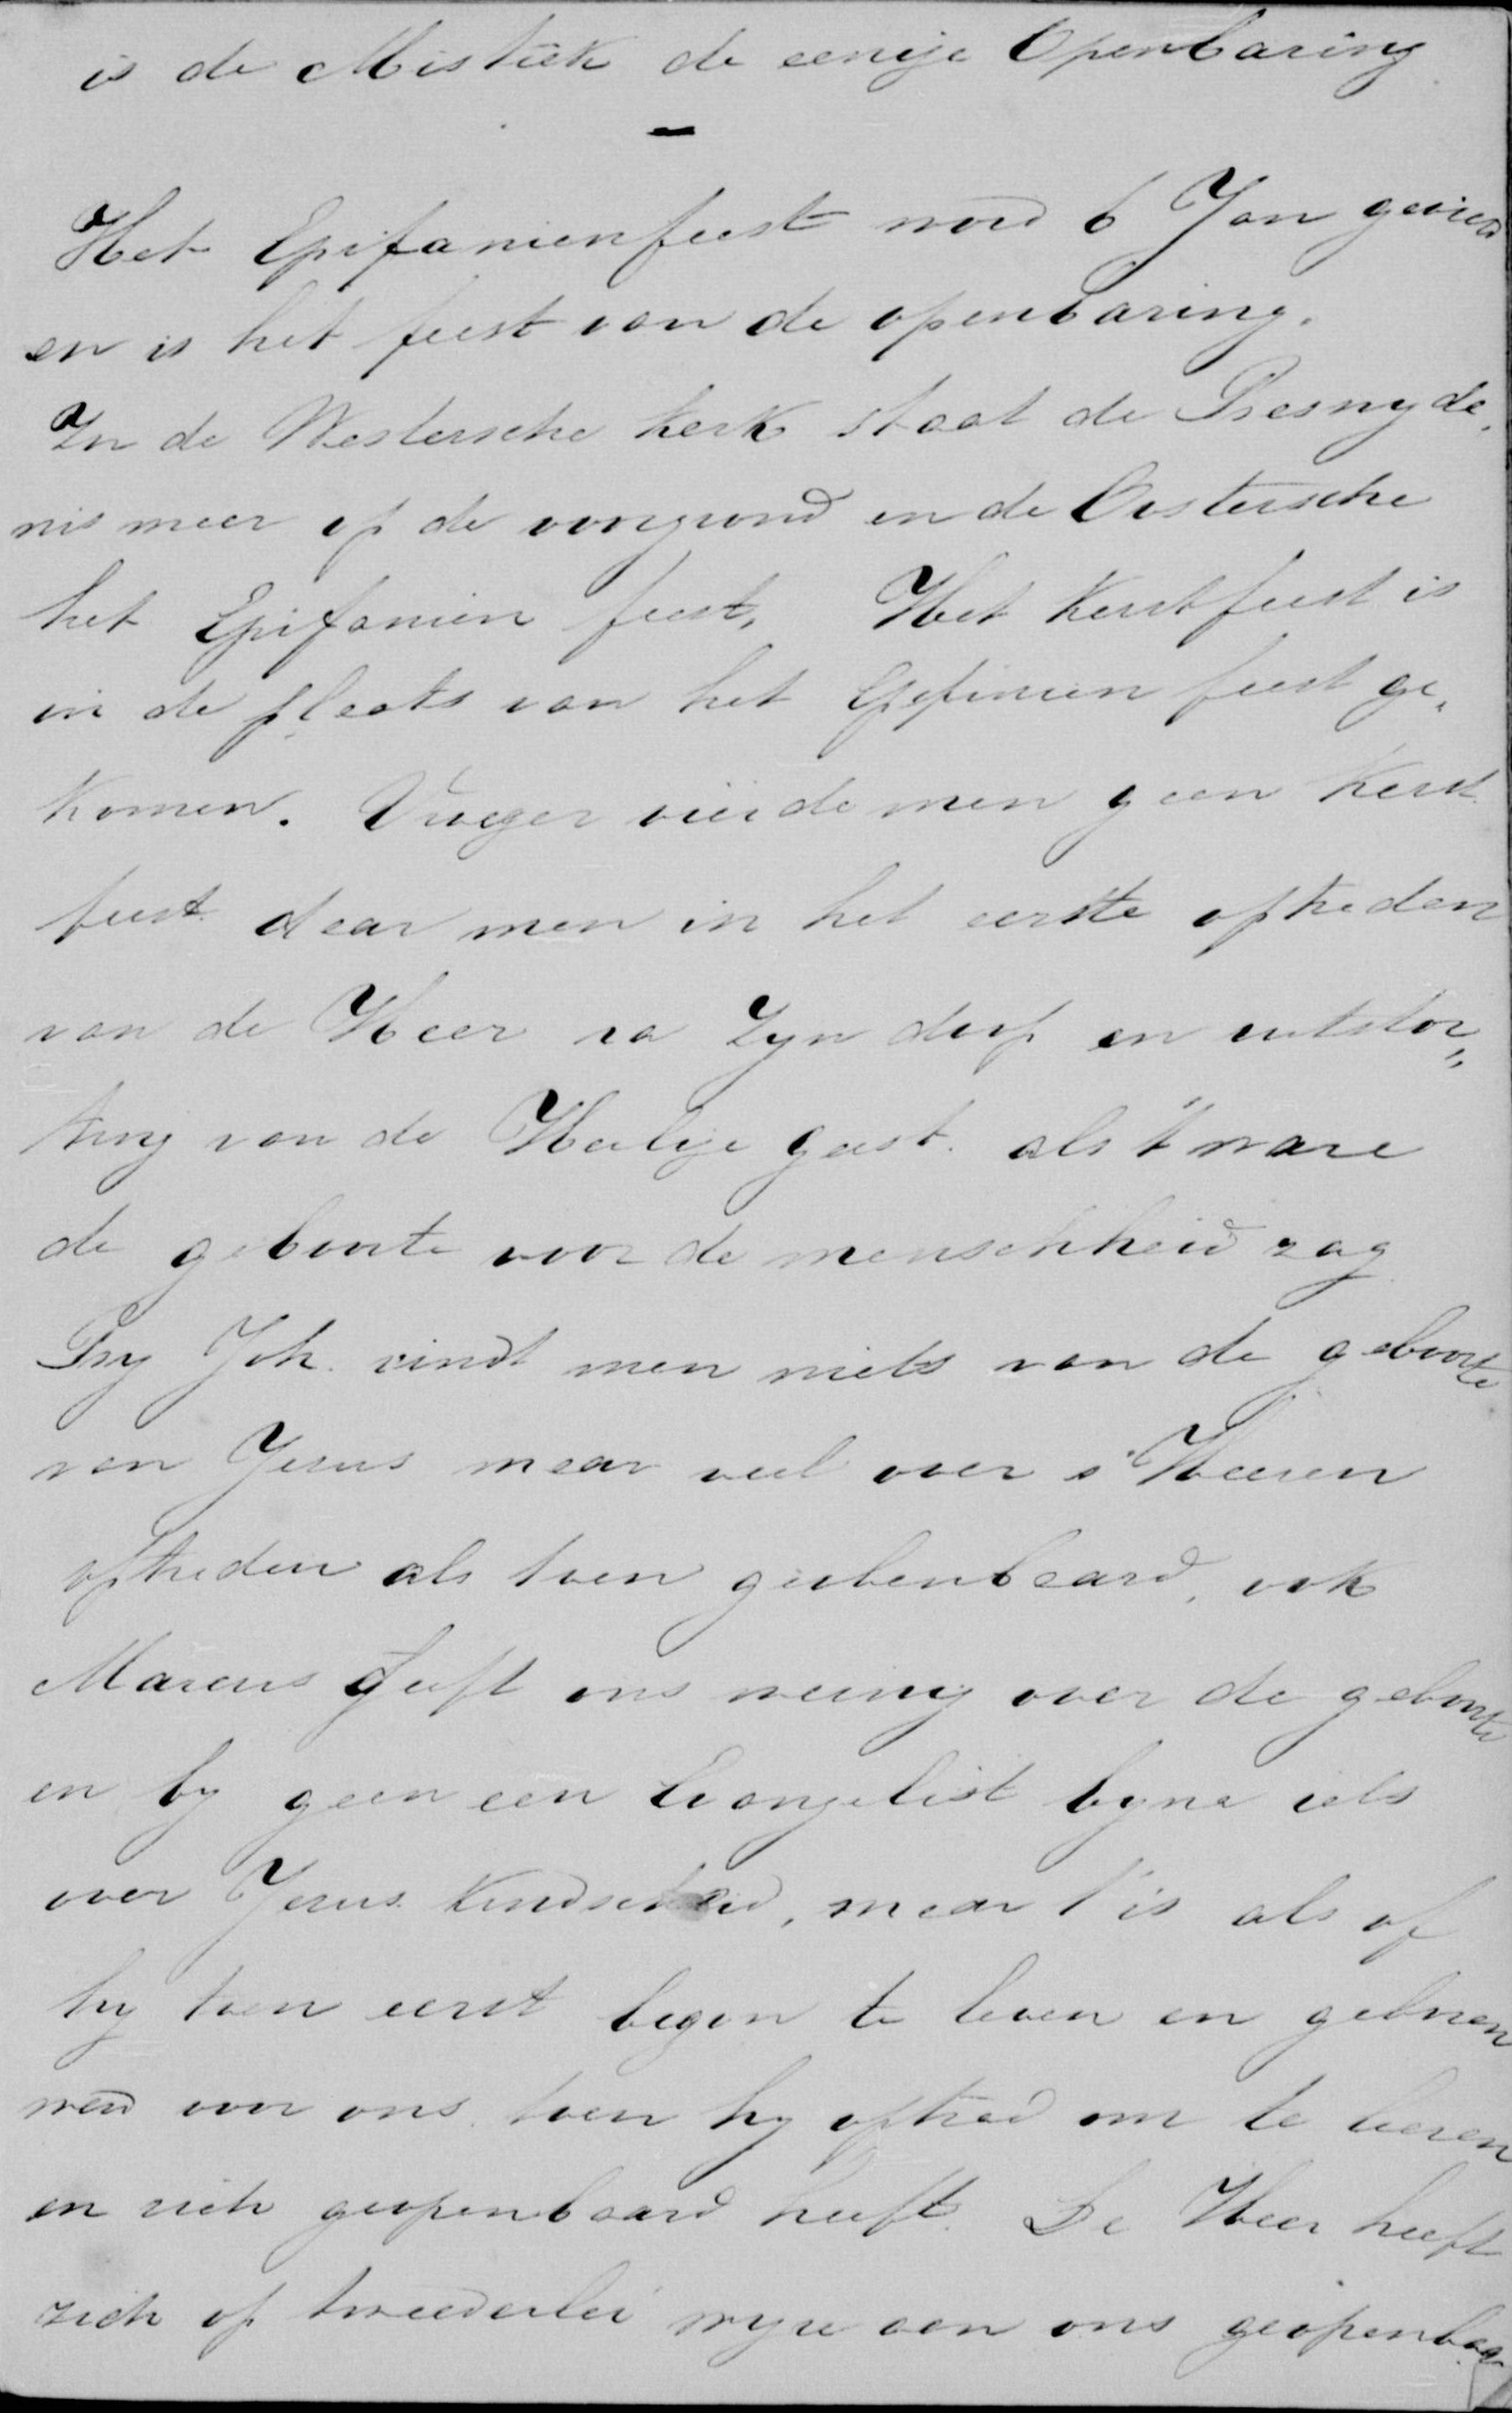 is de Mistiek de eenige Openbaring
-
Het Epifanienfeest word 6 Jan gevierd
en is het feest van de openbaring.
In de Westersche kerk staat de Besnyde,
nis meer op de voorgrond en de Oostersche
het Epifanien feest, Het Kerstfeest is
in de plaats van het Epifinien feest ge,
komen. Vroeger vierde men geen Kerst
feest daar men in het eerste optreden
van de Heer na Zyn doop en uitstor,,
ting van de Heilige geest. als 't ware
de geboorte voor de menschheid zag
By Joh. vindt men niets van de geboorte
van Jesus maar veel over s' Heeren
optreden als toen geobenbaard, ook
Marcus geeft ons weinig over de geboorte
en by geen een Evangelist byna iets
over Jesus Kindscheid, maar t' is als of
hy toen eerst begon te leven en geboren
werd voor ons toen hy optrad om te leeren
en zich geopenbaard heeft. De Heer heeft
zich op tweederlei wyze aan ons geopenbaa